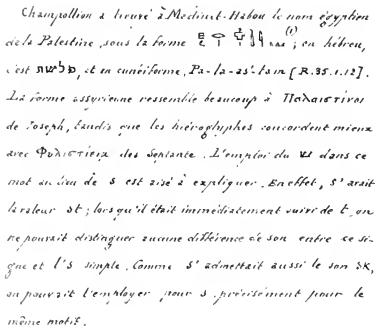 Champollion a trouvé à Médinet-Habou le nom égyptien
de la Palestine, sous la forme (1); en hébreu,
c'est פלשת, et en cunéiforme, Pa-la-as'-ta [R.35.1.12].
La forme assyrienne ressemble beaucoup à Παλαιστίνοι
de Joseph, tandis que les hiéroglyphes concordent mieux
avec Φυλιστιειμ des Septante. L'emploi du ש dans ce
mot au lieu de s est aisé à expliquer. En effet, s' avait
la valeur st; lorsqu'il était immédiatement suivi de t, on
ne pouvait distinguer aucune différence de son entre ce si-
gne et l's simple. Comme s' admettait aussi le son sk,
on pouvait l'employer pour s précisément pour le
même motif.